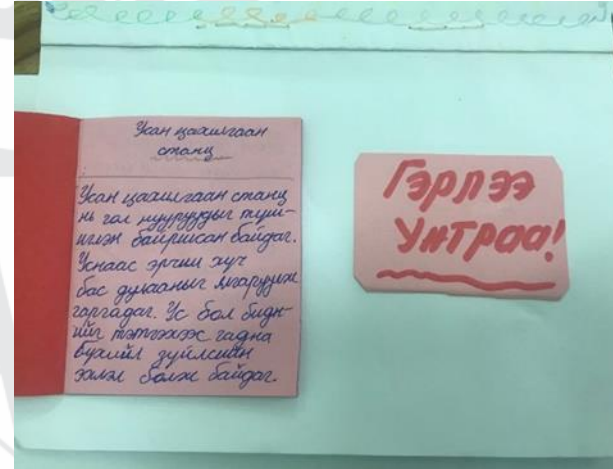 Усан цахилгаан
станц
Усан цахилгаан станц
нь гол нууруудыг түши-
иглэн байрласан байдаг.
Уснаас эрчим хүч
бас дулааныг ялгаруулж
гаргадаг. Ус бол бидн-
ийг тэтгэхээс гадна
бүхийл зүйлсийн
эхлэл болж байдаг.
Гэрлээ
Унтраа!